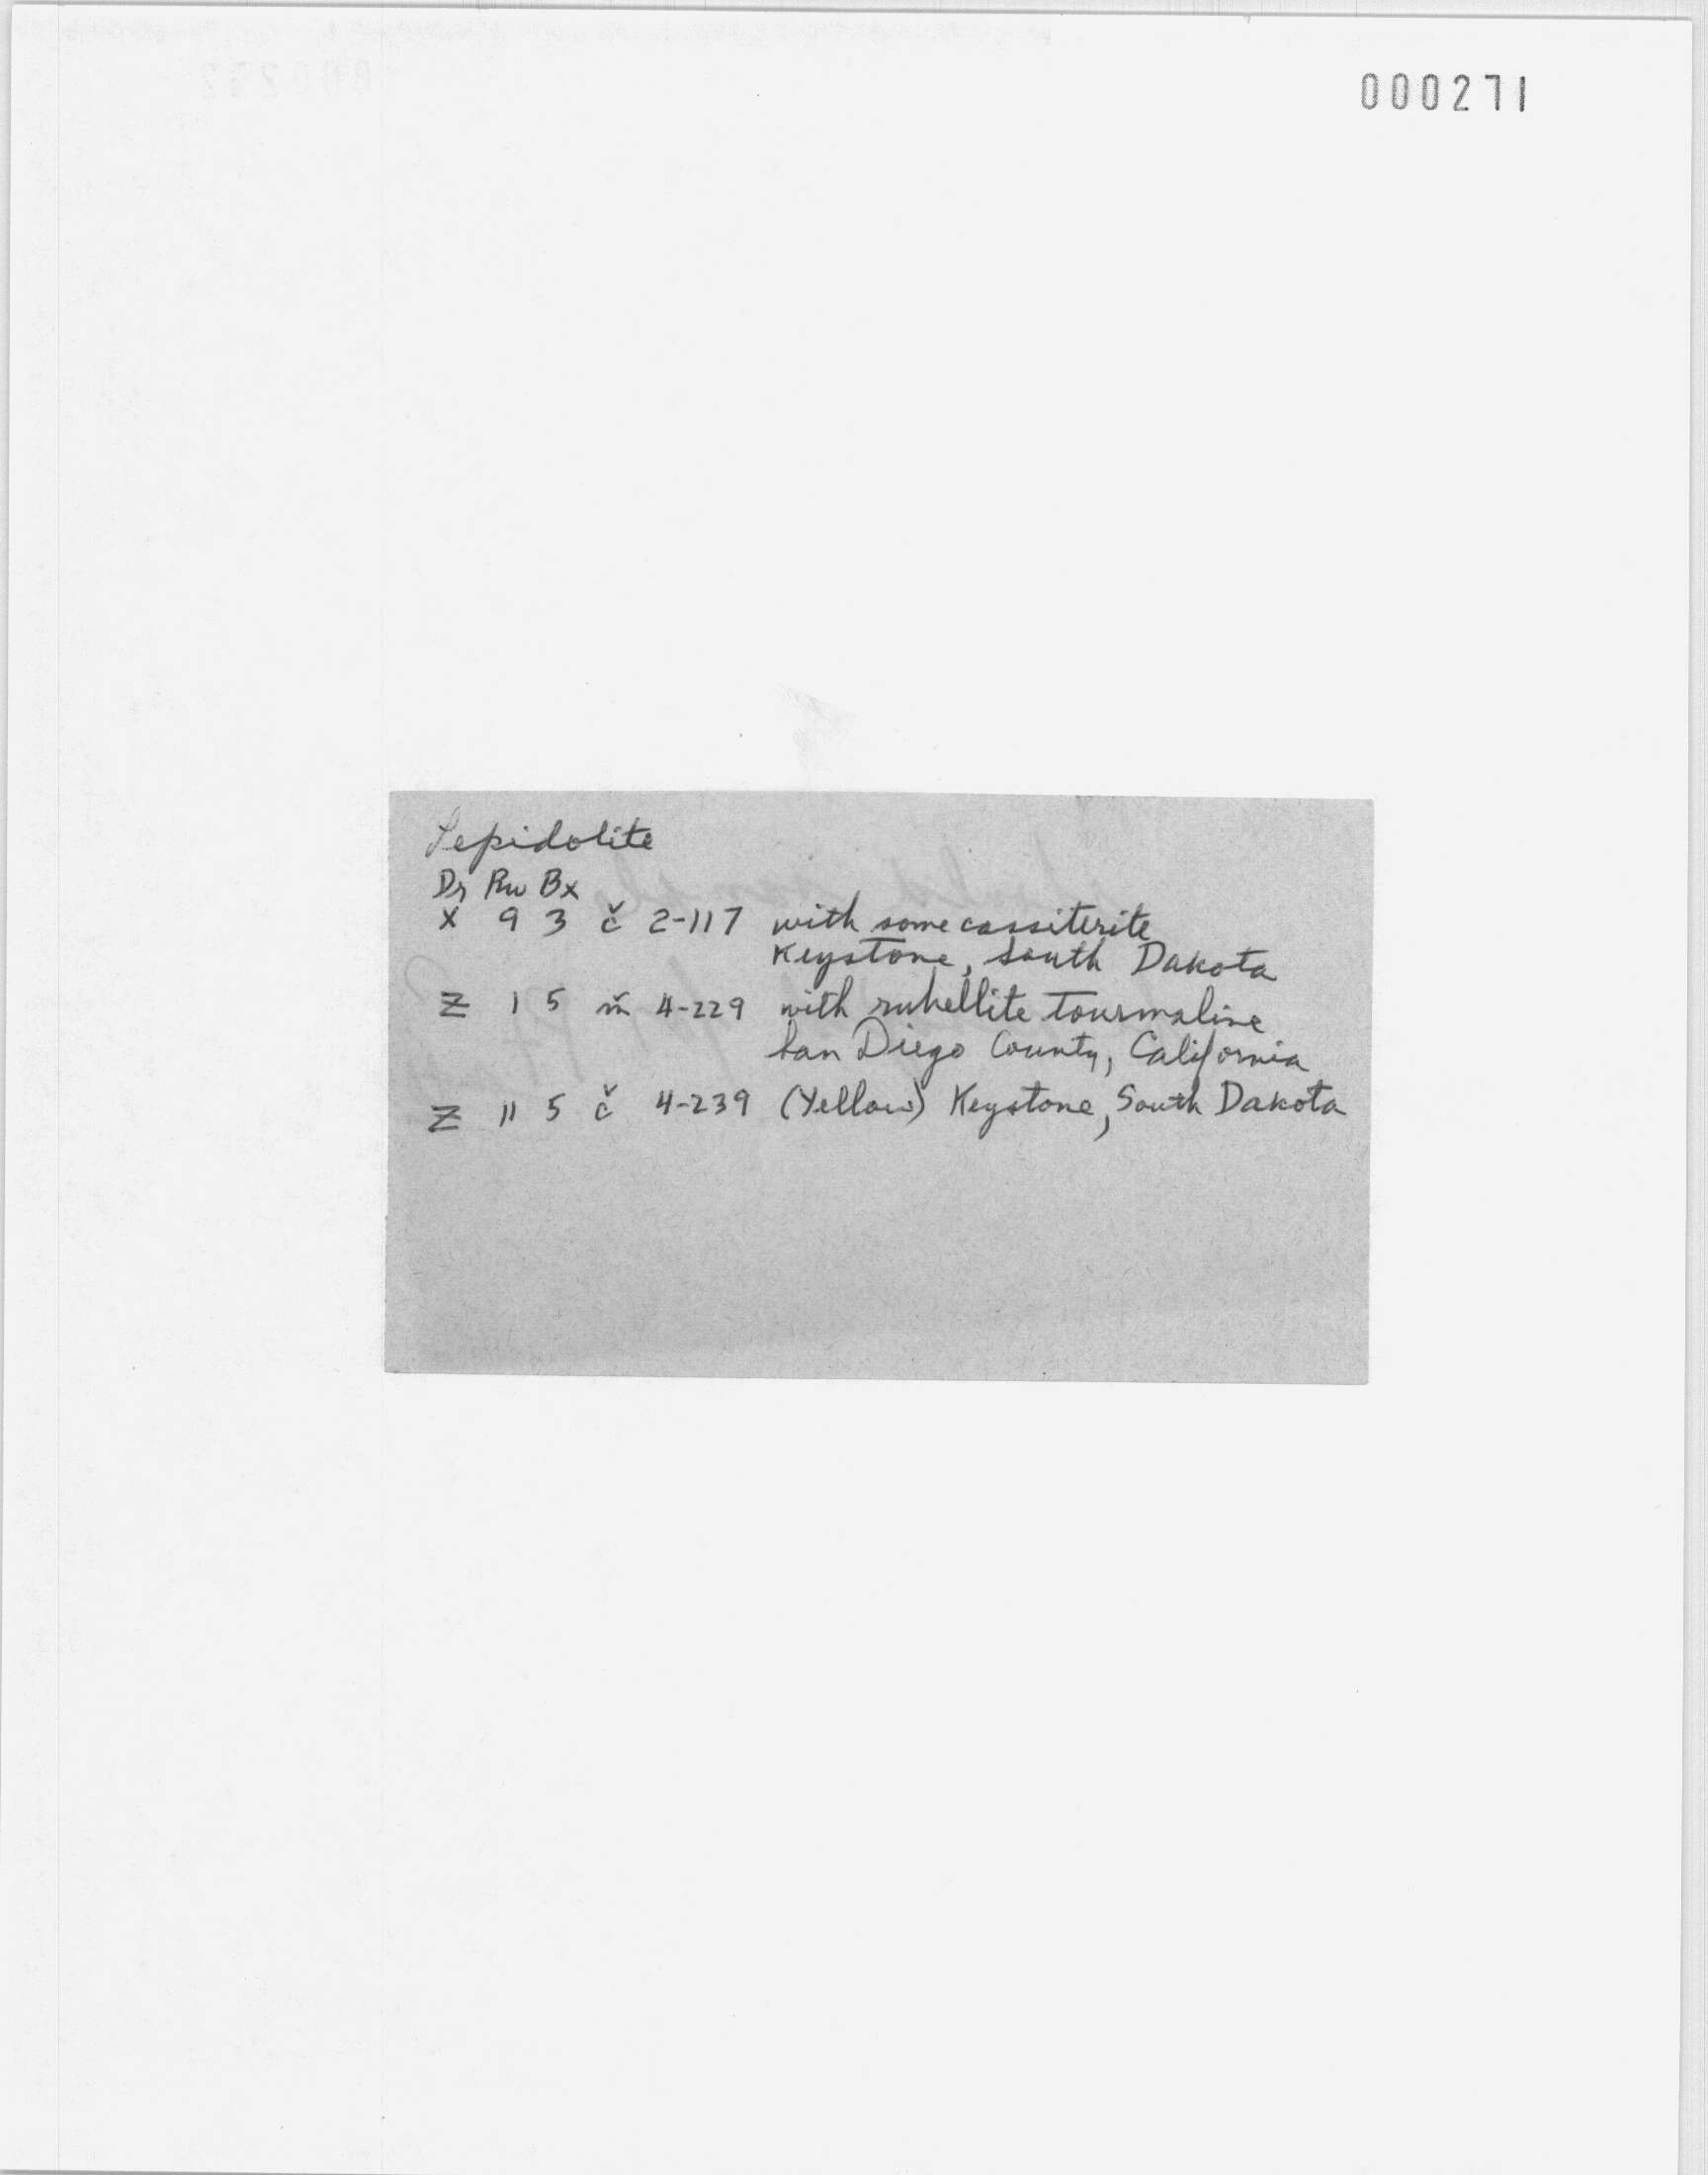 000271
Lepidolite
Dr Rw Bx
X 9 3 č 2-117 with some cassiterite
Keystone, South Dakota
Z 1 5 m̌ 4-229 with rubellite tourmaline
San Diego County, California
Z 11 5 č 4-239 (Yellow) Keystone, South Dakota